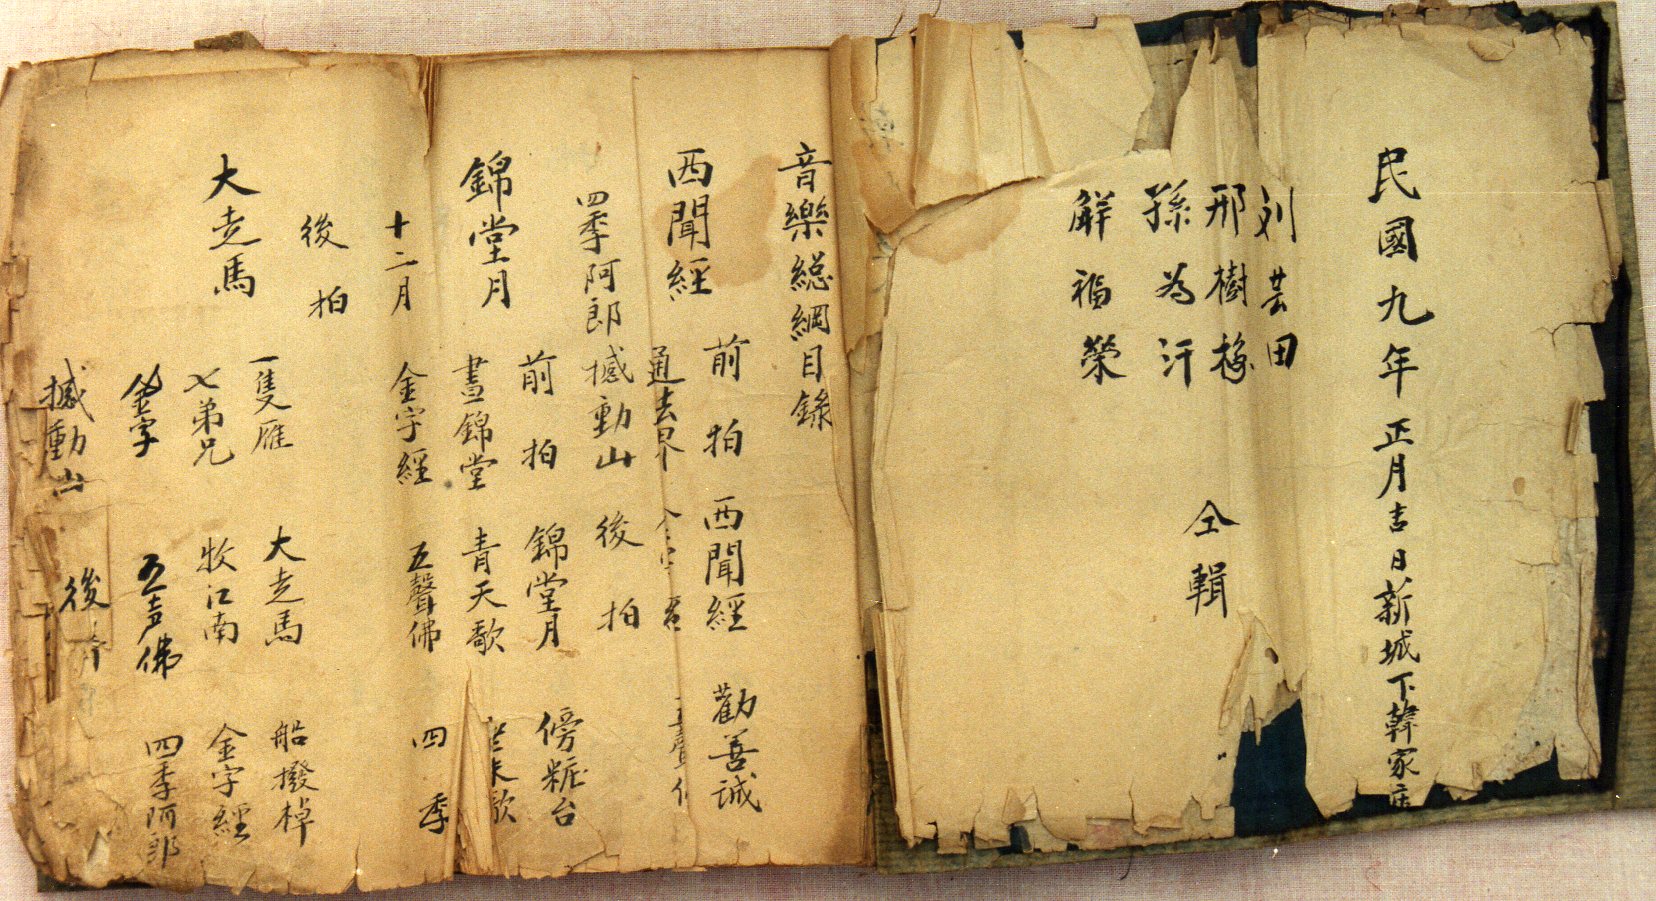 民國九年正月吉日新城下韓家庄
刘芸田
邢樹橡
孫為汗
解福榮
仝輯
音樂総綱目錄
西聞經 前拍 西聞經 勸善誠
通去界
四季阿郎 撼動山 後拍
錦堂月 前拍 錦堂月 傍粧台
晝錦堂 青天歌
十二月 金字經 五聲佛 四季
後拍 一隻雁 大走馬 船撥棹
大走馬 七弟兄 牧江南 金字經
金字 五声佛 四季阿郎
撼動山 後